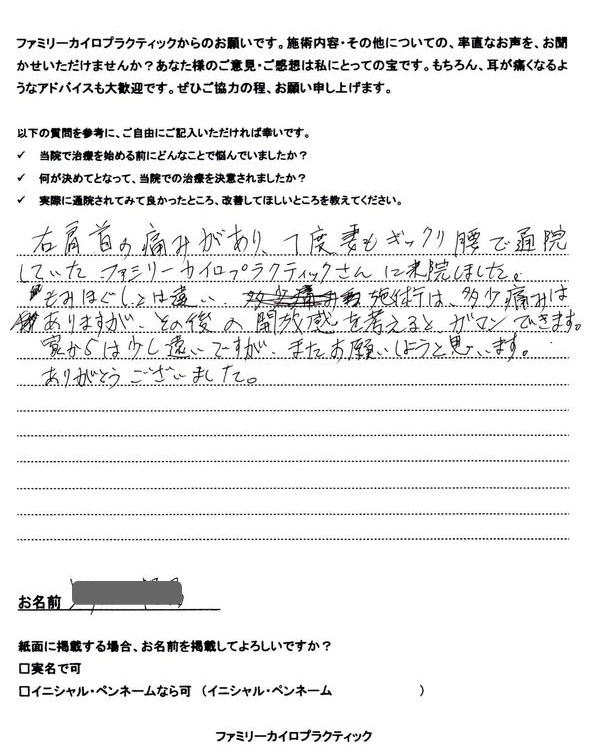 ファミリーカイロプラクティックからのお願いです。施術内容・その他についての、率直なお声を、お聞
かせいただけませんか？あなた様のご意見・ご感想は私にとっての宝です。もちろん、耳が痛くなるよ
うなアドバイスも大歓迎です。ぜひご協力の程、お願い申し上げます。
以下の質問を参考に、ご自由にご記入いただければ幸いです。
✓ 当院で治療を始める前にどんなことで悩んでいましたか？
✓ 何が決めてとなって、当院での治療を決意されましたか？
✓ 実際に通院されてみて良かったところ、改善してほしいところを教えてください。
右肩首の痛みがあり、1度妻もギックリ腰で通院
していたファミリーカイロプラクティックさんに来院しました。
もみほぐしとは違い 施術は、多少痛みは
ありますが、その後の開放感を考えるとガマンできます。
家からは少し遠いですが、またお願いしようと思います。
ありがとうございました。
お名前
紙面に掲載する場合、お名前を掲載してよろしいですか？
□実名で可
□イニシャル・ペンネームなら可 （イニシャル・ペンネーム ）
ファミリーカイロプラクティック